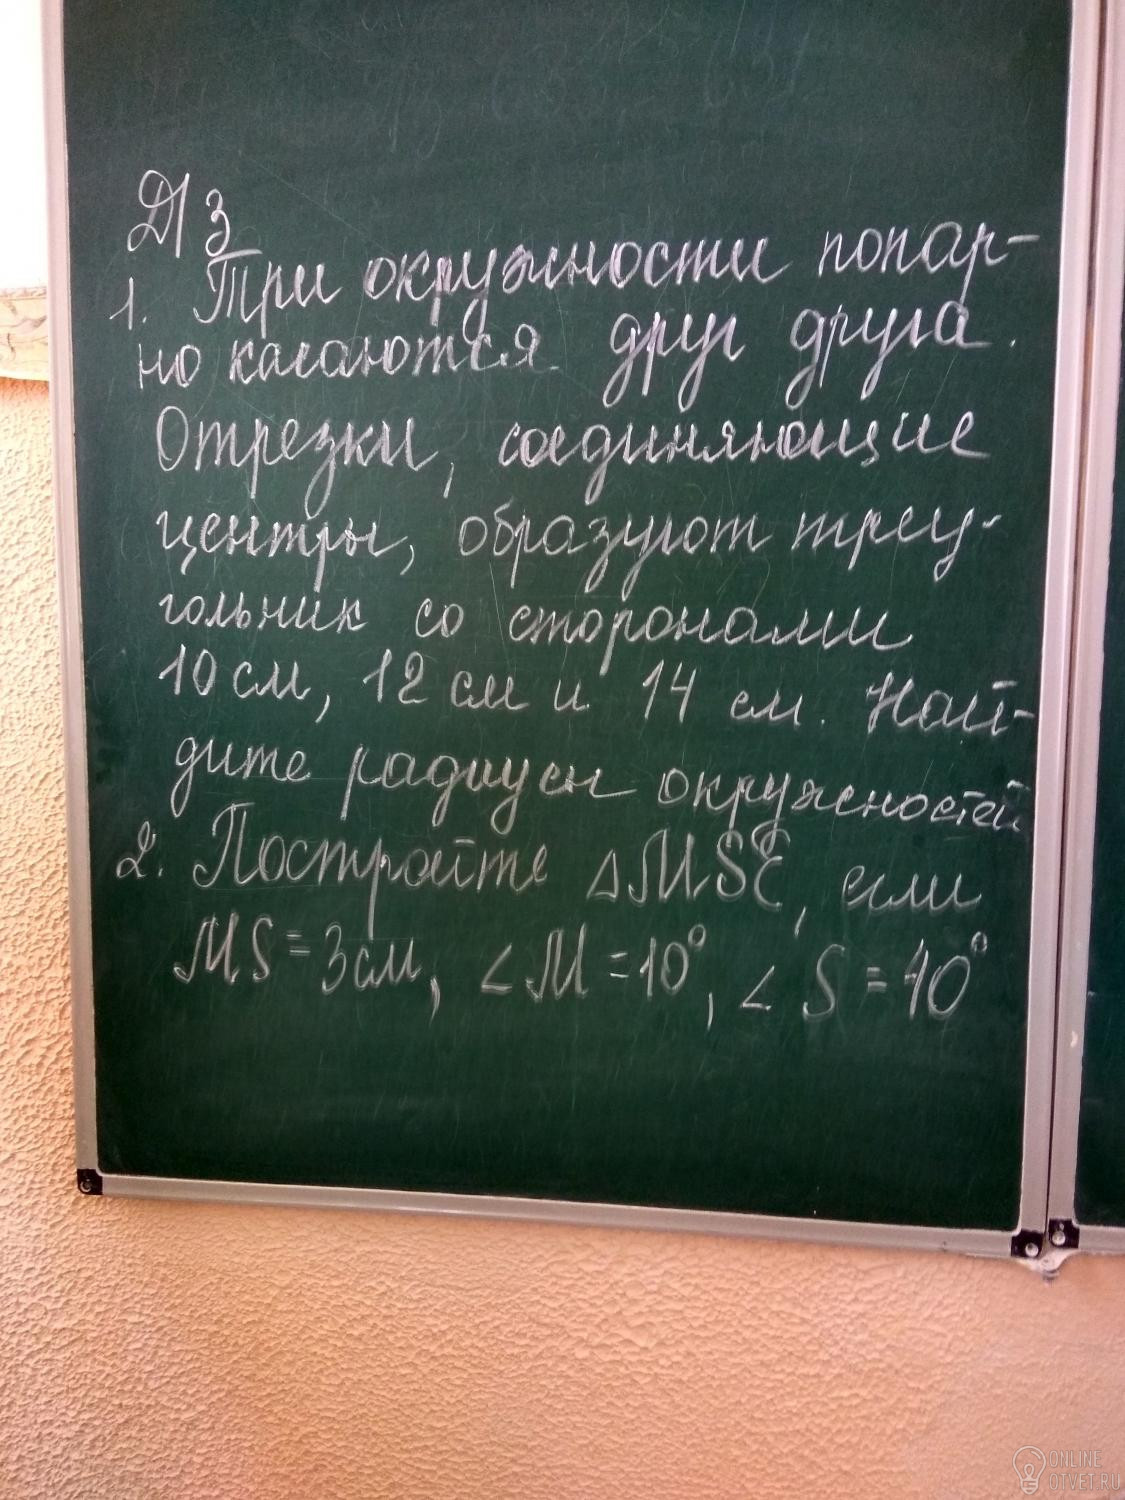 Д/З
1. Три окружности попар-
но касаются друг друга.
Отрезки, соединяющие
центры, образуют треу-
гольник со сторонами
10 см, 12 см и 14 см. Най-
дите радиусы окружностей
2. Постройте △MSE, если
MS = 3 см, ∠M = 10°, ∠S = 40°
ONLINE
OTVET.RU